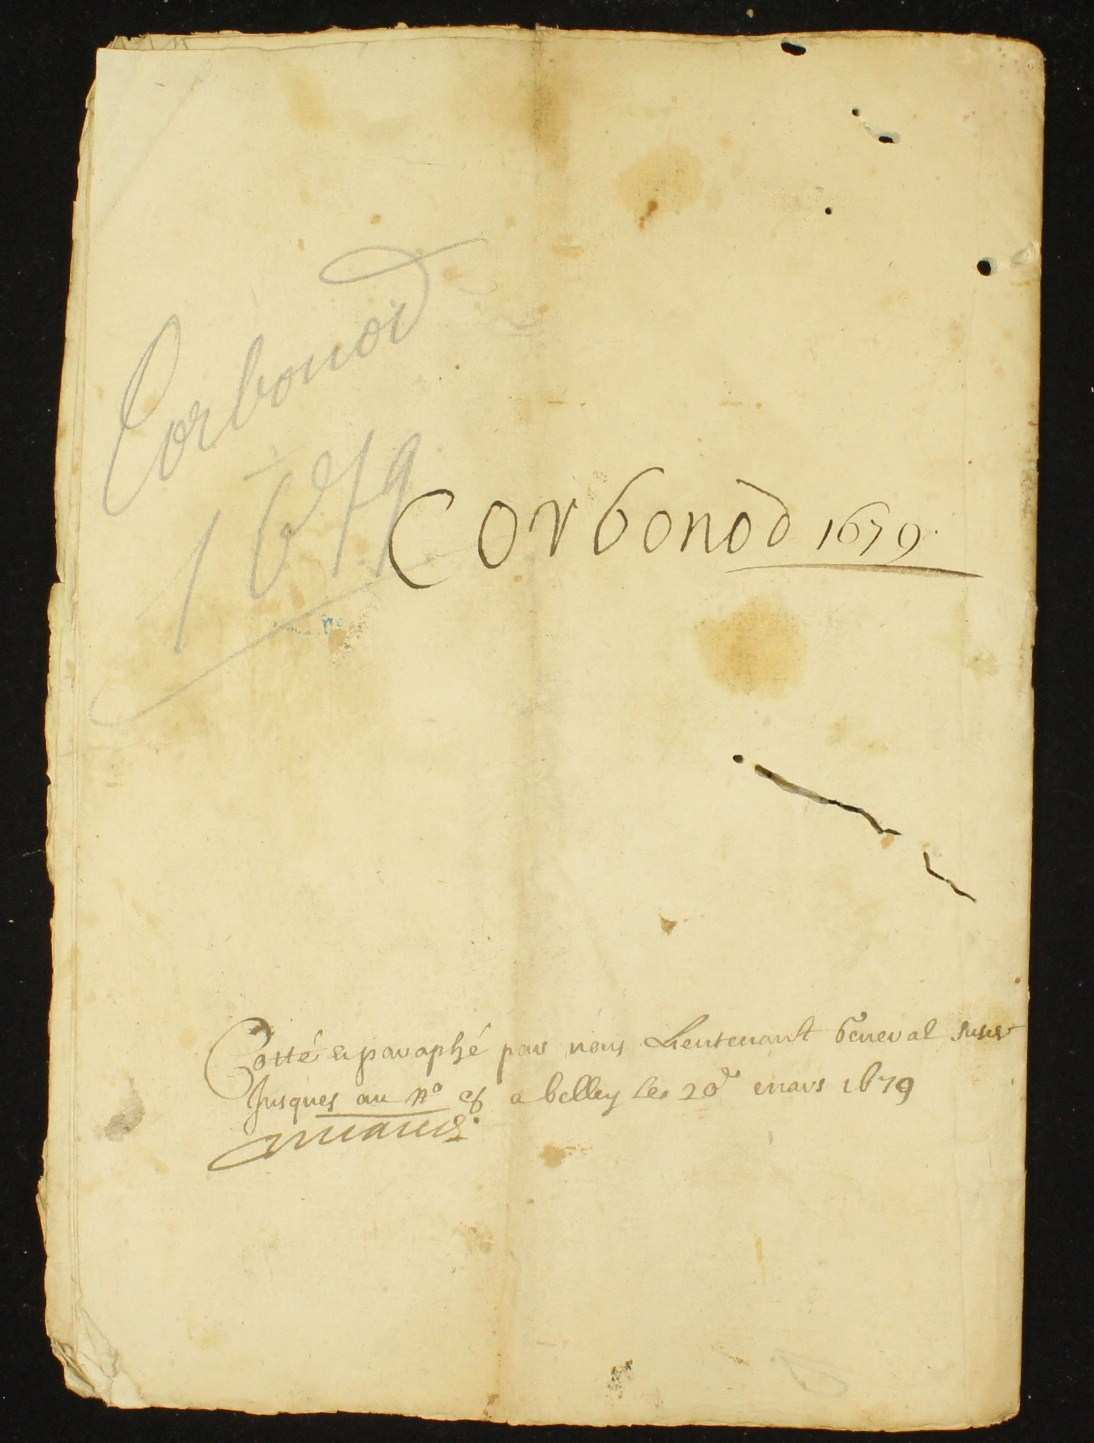 Corbonod
1679
Corbonod 1679
Cotté et paraphé par nous Lieutenant General
Jusques au n° a belley le 20e mars 1679